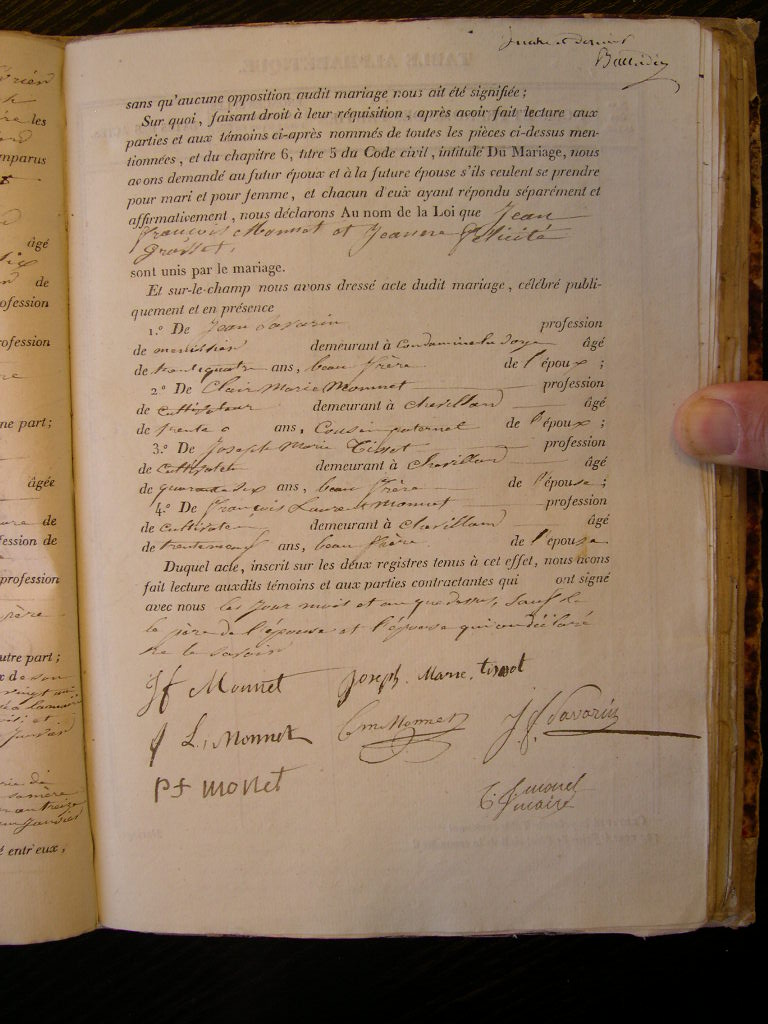 sans qu'aucune opposition audit mariage nous ait été signifiée ;
Sur quoi, faisant droit à leur réquisition, après avoir fait lecture aux
parties et aux témoins ci-après nommés de toutes les pièces ci-dessus men-
tionnées, et du chapitre 6, titre 5 du Code civil, intitulé Du Mariage, nous
avons demandé au futur époux et à la future épouse s'ils veulent se prendre
pour mari et pour femme, et chacun d'eux ayant répondu séparément et
affirmativement, nous déclarons Au nom de la Loi que Jean
françois Monnet et Jeanne félicité
sont unis par le mariage.
Et sur-le-champ nous avons dressé acte dudit mariage, célébré publi-
quement et en présence
1.º De Jean Savarin profession
de demeurant à âgé
de trentequatre ans, beau frère de l'époux ;
2º De Clair Marie Monnet profession
de cultivateur demeurant à chevillard âgé
de trente ans, Cousin paternel de l'époux ;
3.º De Joseph Marie Tissot profession
de cultivateur demeurant à chevillard âgé
de quarante six ans, beau frère de l'épouse ;
4.º De françois Monnet profession
de cultivateur demeurant à chevillard âgé
de trenteneuf ans, beau frère de l'épouse
Duquel acte, inscrit sur les deux registres tenus à cet effet, nous avons
fait lecture auxdits témoins et aux parties contractantes qui ont signé
avec nous les jour mois et an que dessus, sauf
le père de l'épouse et l'épouse qui ont déclaré
ne le savoir
Jf Monnet Joseph. Marie. tissot
f L. Monnet Cm Monnet J. f. Savarin
pf monet
maire
âgé
de
profession
profession
une part ;
âgée
de
profession
père
autre part ;
entr'eux,